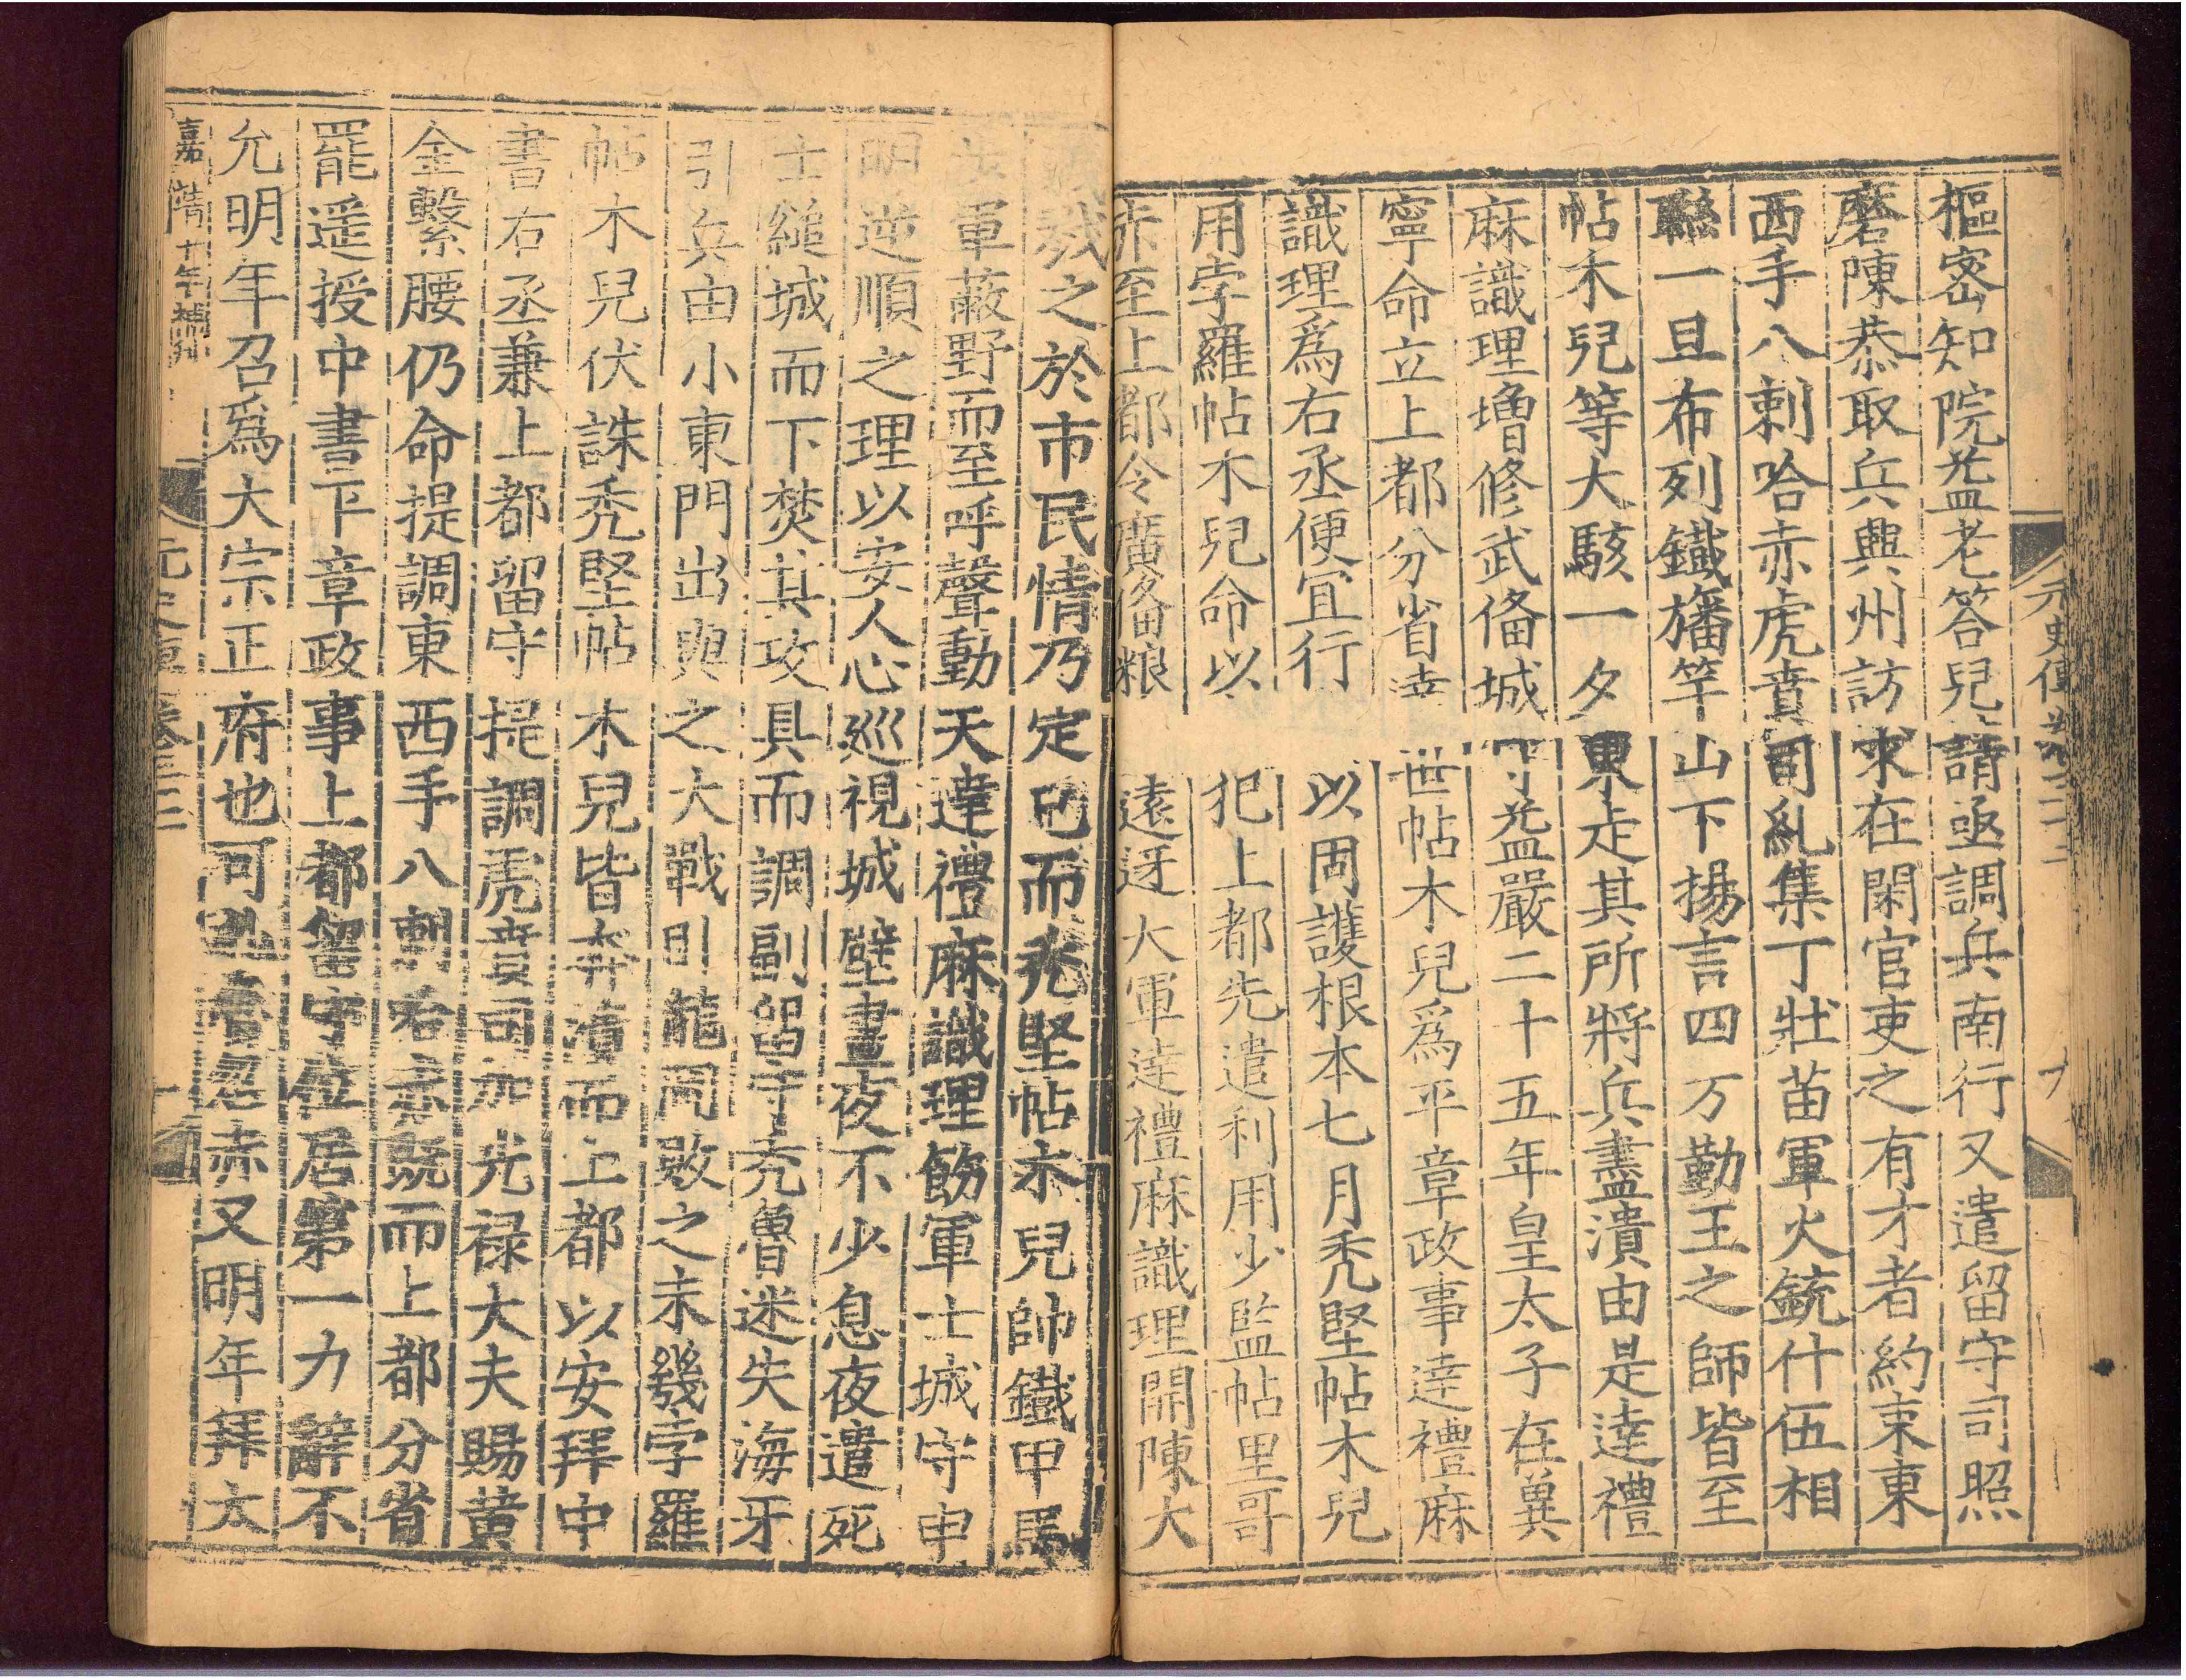 樞密知院益老答兒請亟調兵南行又遣留守司照
磨陳恭取兵興州訪求在閑官吏之有才者約束東
西手八剌哈赤虎賁司糺集丁壯苗軍火銃什伍相
聮一旦布列鐵旛竿山下揚言四万勤王之師皆至
帖木兒等大駭一夕東走其所將兵盡潰由是達禮
麻識理增修武俻城守益嚴二十五年皇太子在兾
寧命立上都分省達世帖木兒爲平章政事達禮麻
識理爲右丞便冝行以固護根本七月禿堅帖木兒
用孛羅帖木兒命以犯上都先遣利用少監帖里哥
赤至上都令廣俻粮遠迓大軍達禮麻識理開陳大
戮之於市民情乃定已而禿堅帖木兒帥鐵甲馬
軍蔽野而至呼聲動天達禮麻識理飭軍士城守申
明逆順之理以安人心巡視城壁晝夜不少息夜遣死
士縋城而下焚其攻具而調副留守禿魯迷失海牙
引兵由小東門出與之大戰卧龍岡敗之未㡬孛羅
帖木兒伏誅禿堅帖木兒皆奔潰而上都以安拜中
書右丞兼上都留守提調虎賁司加光禄大夫賜黃
金繫腰仍命提調東西手八剌哈赤既而上都分省
罷遥授中書平章政事上都留守位居第一力辭不
允明年召爲大宗正府也可扎魯忽赤又明年拜太
嘉靖十年補刊
元史傳卷三十二